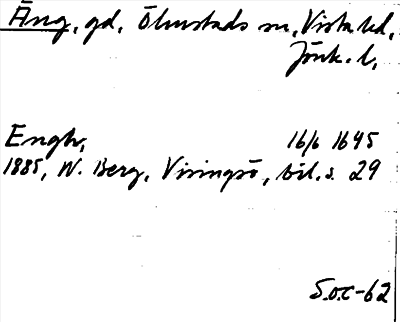 Äng, gd, Ölmstads sn, Vista hd,
Jönk. l,
Engh, 16/6 1645
1885, W. Berg, Visingsö, bil. s. 29
S.O.C-62